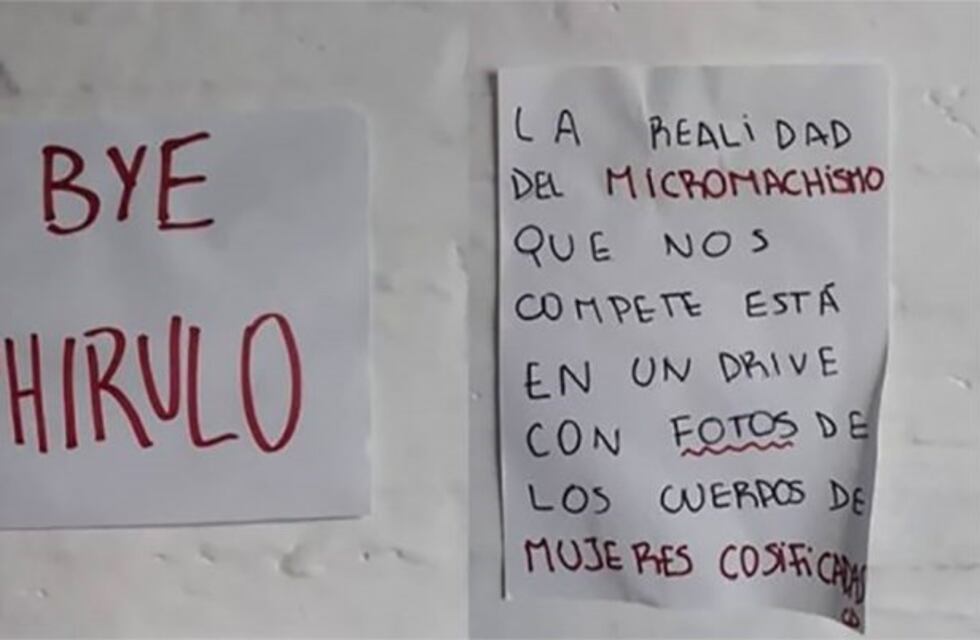 BYE
HIRULO
LA REALIDAD
DEL MICROMACHISMO
QUE NOS
COMPETE ESTÁ
EN UN DRIVE
CON FOTOS DE
LOS CUERPOS DE
MUJERES COSIFICADAS